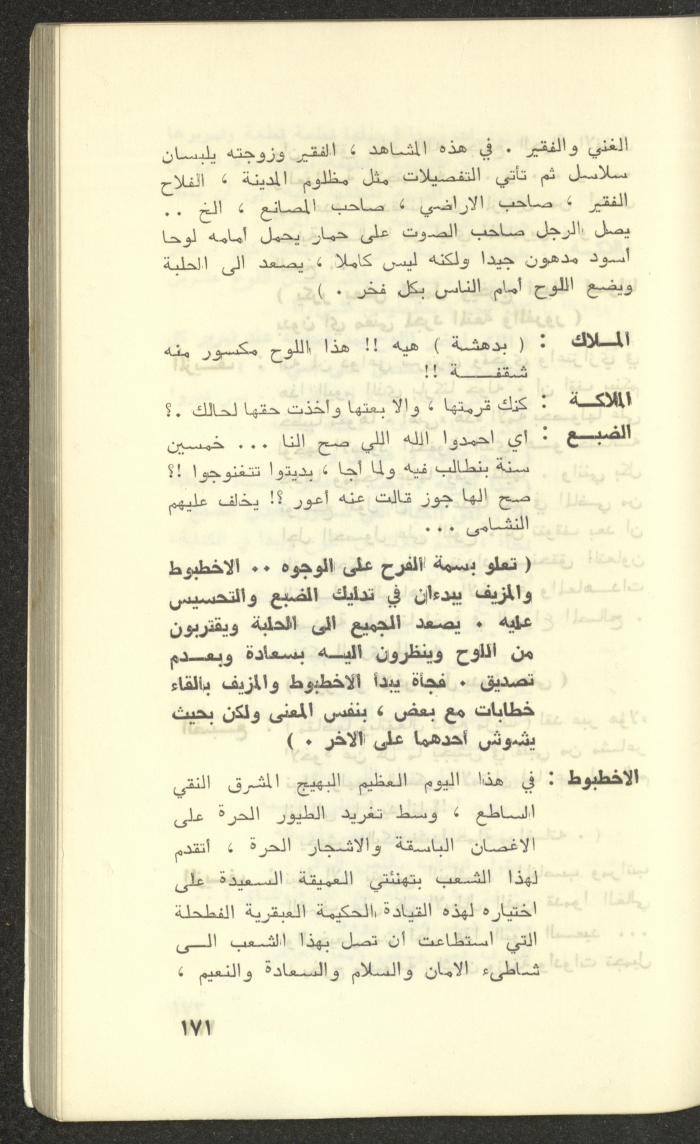 الغني والفقير . في هذه المشاهد ، الفقير وزوجته يلبسان
سلاسل ثم تأتي التفصيلات مثل مظلوم المدينة ، الفلاح
الفقير ، صاحب الاراضي ، صاحب المصانع ، الخ ..
يصل الرجل صاحب الصوت على حمار يحمل أمامه لوحا
أسود مدهون جيدا ولكنه ليس كاملا ، يصعد الى الحلبة
ويضع اللوح أمام الناس بكل فخر . )
المــلاك : ( بدهشة ) هيه !! هذا اللوح مكسور منه
شقفــــة !!
الملاكــة : كنك قرمتها ، والا بعتها واخذت حقها لحالك .؟
الضبــع : اي احمدوا الله اللي صح النا ... خمسين
سنة بنطالب فيه ولما أجا ، بديتوا تتغنوجوا !؟
صح الها جوز قالت عنه أعور ؟! يخلف عليهم
النشامى ...
( تعلو بسمة الفرح على الوجوه .. الاخطبوط
والمزيف يبدءان في تدليك الضبع والتحسيس
عليه . يصعد الجميع الى الحلبة ويقتربون
من اللوح وينظرون اليــه بسعادة وبعــدم
تصديق . فجأة يبدأ الاخطبوط والمزيف بالقاء
خطابات مع بعض ، بنفس المعنى ولكن بحيث
يشوش أحدهما على الآخر . )
الاخطبوط : في هذا اليوم العظيم البهيج المشرق النقي
الساطع ، وسط تغريد الطيور الحرة على
الاغصان الباسقة والاشجار الحرة ، أتقدم
لهذا الشعب بتهنئتي العميقة السعيدة على
اختياره لهذه القيادة الحكيمة العبقرية الفطحلة
التي استطاعت أن تصل بهذا الشعب الــى
شاطىء الامان والسلام والسعادة والنعيم ،
١٧١